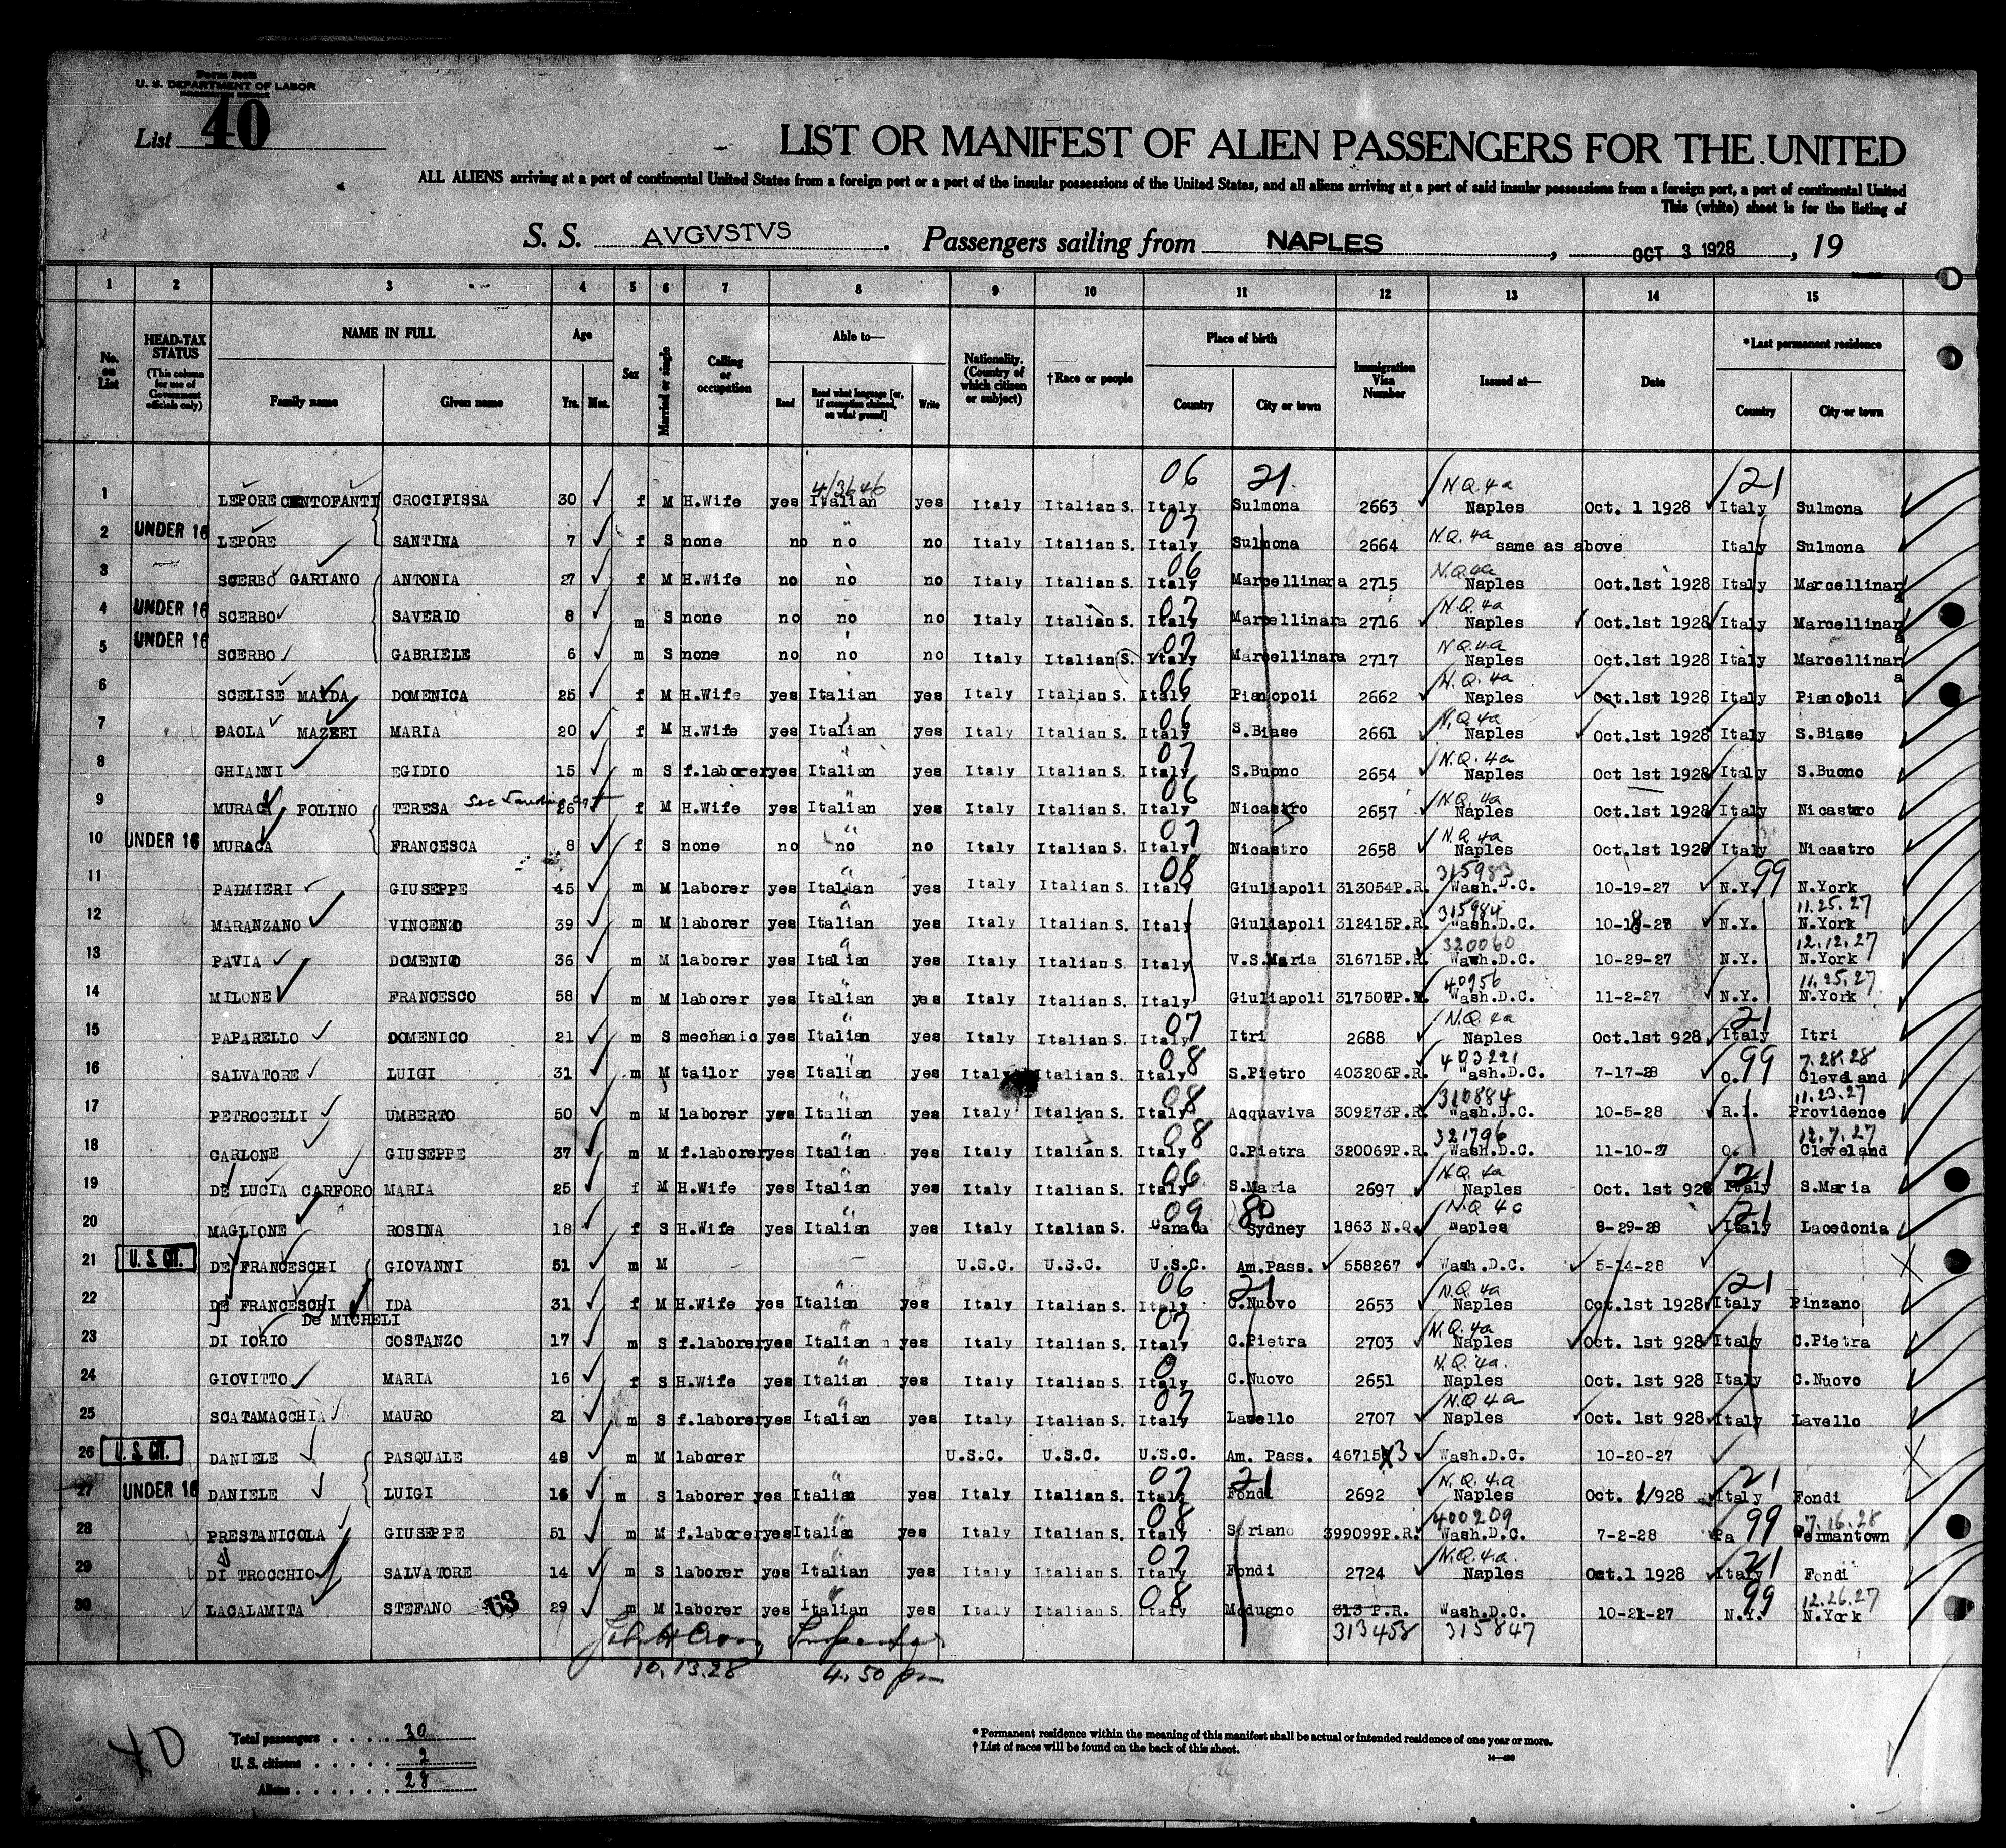 Form
U. S. DEPARTMENT OF LABOR
List 40
LIST OR MANIFEST OF ALIEN PASSENGERS FOR THE UNITED
ALL ALIENS arriving at a port of continental United States from a foreign port or a port of the insular possessions of the United States, and all aliens arriving at a port of said insular possessions from a foreign port, a port of continental United
This (white) sheet is for the listing of
S. S. AVGVSTVS . Passengers sailing from NAPLES , OCT 3 1928 , 19
1 2 3 4 5 6 7 8 9 10 11 12 13 14 15
No. on List
HEAD-TAX STATUS (This column for use of Government officials only)
NAME IN FULL Family name Given name
Age Yrs. Mos.
Sex
Married or single
Calling or occupation
Able to— Read Read what language [or, if exemption claimed, on what ground] Write
Nationality. (Country of which citizen or subject)
†Race or people
Place of birth Country City or town
Immigration Visa Number
Issued at—
Date
*Last permanent residence Country City or town
06 21. N.Q.4a 21
1 LEPORE CENTOFANTI CROCIFISSA 30 f M H.Wife yes Italian yes Italy Italian S. Italy Sulmona 2663 Naples Oct. 1 1928 Italy Sulmona
07 N.Q. 4a
2 UNDER 16 LEPORE SANTINA 7 f S none no no no Italy Italian S. Italy Sulmona 2664 same as above Italy Sulmona
06 N.Q.4a
3 SCERBO GARIANO ANTONIA 27 f M H.Wife no no no Italy Italian S. Italy Marcellinara 2715 Naples Oct.1st 1928 Italy Marcellinara
07 N.Q.4a
4 UNDER 16 SCERBO SAVERIO 8 m S none no no no Italy Italian S. Italy Marcellinara 2716 Naples Oct.1st 1928 Italy Marcellinara
07 N.Q.4a
5 UNDER 16 SCERBO GABRIELE 6 m S none no no no Italy Italian S. Italy Marcellinara 2717 Naples Oct.1st 1928 Italy Marcellinara
06 N.Q. 4a
6 SCELISE MAIDA DOMENICA 25 f M H.Wife yes Italian yes Italy Italian S. Italy Pianopoli 2662 Naples Oct.1st 1928 Italy Pianopoli
06 N.Q.4a
7 PAOLA MAZZEI MARIA 20 f M H.Wife yes Italian yes Italy Italian S. Italy S.Biase 2661 Naples Oct.1st 1928 Italy S.Biase
07 N.Q.4a
8 GHIANNI EGIDIO 15 m S f.laborer yes Italian yes Italy Italian S. Italy S.Buono 2654 Naples Oct 1st 1928 Italy S.Buono
06 N.Q. 4a
9 MURACA FOLINO TERESA 26 f M H.Wife yes Italian yes Italy Italian S. Italy Nicastro 2657 Naples Oct.1st 1928 Italy Nicastro
07 N.Q. 4a
10 UNDER 16 MURACA FRANCESCA 8 f S none no no no Italy Italian S. Italy Nicastro 2658 Naples Oct.1st 1928 Italy Nicastro
08 315983 99
11 PALMIERI GIUSEPPE 45 m M laborer yes Italian yes Italy Italian S. Italy Giuliapoli 313054P.R. Wash.D.C. 10-19-27 N.Y. N.York
315984 11.25.27
12 MARANZANO VINCENZO 39 m M laborer yes Italian yes Italy Italian S. Italy Giuliapoli 312415P.R. Wash.D.C. 10-18-27 N.Y. N.York
320060 12.12.27
13 PAVIA DOMENICO 36 m M laborer yes Italian yes Italy Italian S. Italy V.S.Maria 316715P.R. Wash.D.C. 10-29-27 N.Y. N.York
11.25.27
14 MILONE FRANCESCO 58 m M laborer yes Italian yes Italy Italian S. Italy Giuliapoli Wash.D.C. 11-2-27 N.Y. N.York
07 N.Q. 4a 21
15 PAPARELLO DOMENICO 21 m S mechanic yes Italian yes Italy Italian S. Italy Itri 2688 Naples Oct.1st 928 Italy Itri
08 403221 99 7.28.28
16 SALVATORE LUIGI 31 m M tailor yes Italian yes Italy Italian S. Italy S.Pietro 403206P.R. Wash.D.C. 7-17-28 O. Cleveland
08 310884 11.23.27
17 PETROCELLI UMBERTO 50 m M laborer yes Italian yes Italy Italian S. Italy Acquaviva 309273P.R. Wash.D.C. 10-5-28 R.I. Providence
08 321796 12.7.27
18 CARLONE GIUSEPPE 37 m M f.laborer yes Italian yes Italy Italian S. Italy C.Pietra 320069P.R. Wash.D.C. 11-10-27 O. Cleveland
06 N.Q. 4a 21
19 DE LUCIA CARFORO MARIA 25 f M H.Wife yes Italian yes Italy Italian S. Italy S.Maria 2697 Naples Oct. 1st 928 Italy S.Maria
09 80 N.Q 4c 21
20 MAGLIONE ROSINA 18 f S H.Wife yes Italian yes Italy Italian S. Canada Sydney 1863 N.Q. Naples 8-29-28 Italy Lacedonia
21 U.S. CIT. DE FRANCESCHI GIOVANNI 51 m M U.S.C. U.S.C. U.S.C. Am.Pass. 558267 Wash.D.C. 5-14-28
06 21 N.Q.4a 21
22 DE FRANCESCHI IDA 31 f M H.Wife yes Italian yes Italy Italian S. Italy C.Nuovo 2653 Naples Oct.1st 1928 Italy Pinzano
De MICHELI
07 N.Q.4a
23 DI IORIO COSTANZO 17 m S f.laborer yes Italian yes Italy Italian S. Italy C.Pietra 2703 Naples Oct. 1st 928 Italy C.Pietra
N.Q. 4a.
24 GIOVITTO MARIA 16 f S H.Wife yes Italian yes Italy Italian S. Italy C.Nuovo 2651 Naples Oct. 1st 928 Italy C.Nuovo
07 N.Q 4a
25 SCATAMACCHIA MAURO 21 m S f.laborer yes Italian yes Italy Italian S. Italy Lavello 2707 Naples Oct. 1st 928 Italy Lavello
26 U.S. CIT. DANIELE PASQUALE 48 m M laborer U.S.C. U.S.C. U.S.C. Am. Pass. 467153 Wash.D.C. 10-20-27
07 21 N.Q. 4.a 21
27 UNDER 16 DANIELE LUIGI 15 m S laborer yes Italian yes Italy Italian S. Italy Fondi 2692 Naples Oct. 1/928 Italy Fondi
08 400209 99 7.16.28
28 PRESTANICOLA GIUSEPPE 51 m M f.laborer yes Italian yes Italy Italian S. Italy Soriano 399099P.R. Wash.D.C. 7-2-28 Pa
07 N.Q.4.a. 21
29 DI TROCCHIO SALVATORE 14 m S laborer yes Italian yes Italy Italian S. Italy Fondi 2724 Naples Oct.1 1928 Italy Fondi
08 99 12.26.27
30 LACALAMITA STEFANO 63 29 m M laborer yes Italian yes Italy Italian S. Italy Modugno 313 P.R. Wash.D.C. 10-21-27 N.Y. N.York
313458 315847
Inspector
10.13.28 4.50 pm
40
Total passengers 30
U. S. citizens 2
Aliens 28
* Permanent residence within the meaning of this manifest shall be actual or intended residence of one year or more.
† List of races will be found on the back of this sheet.